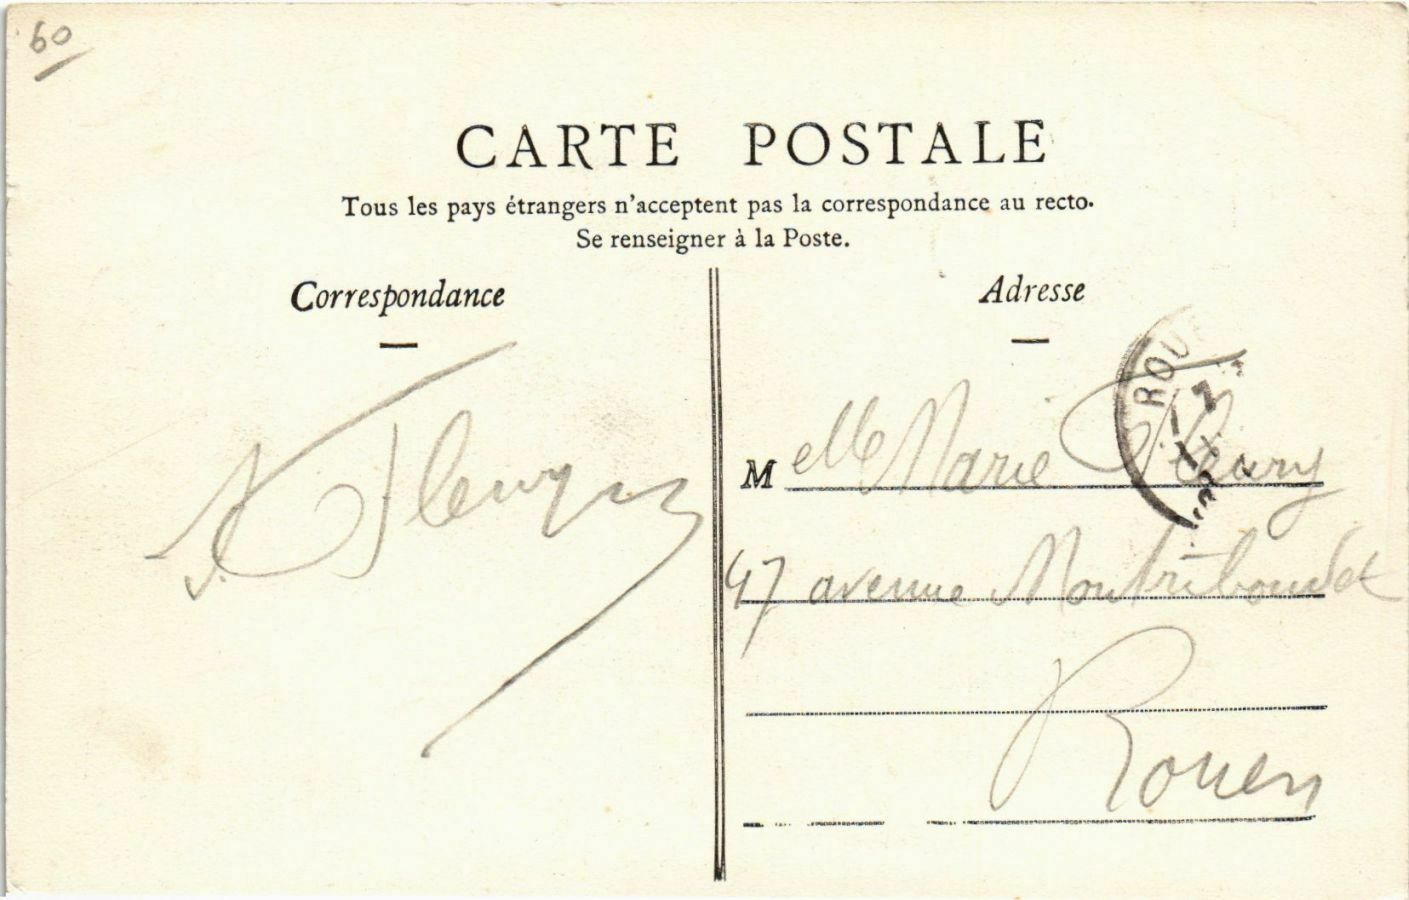 60
CARTE POSTALE
Tous les pays étrangers n'acceptent pas la correspondance au recto.
Se renseigner à la Poste.
Correspondance
Adresse
Fleury
Melle Marie Fleury
47 avenue Montriboudet
Rouen
ROUEN